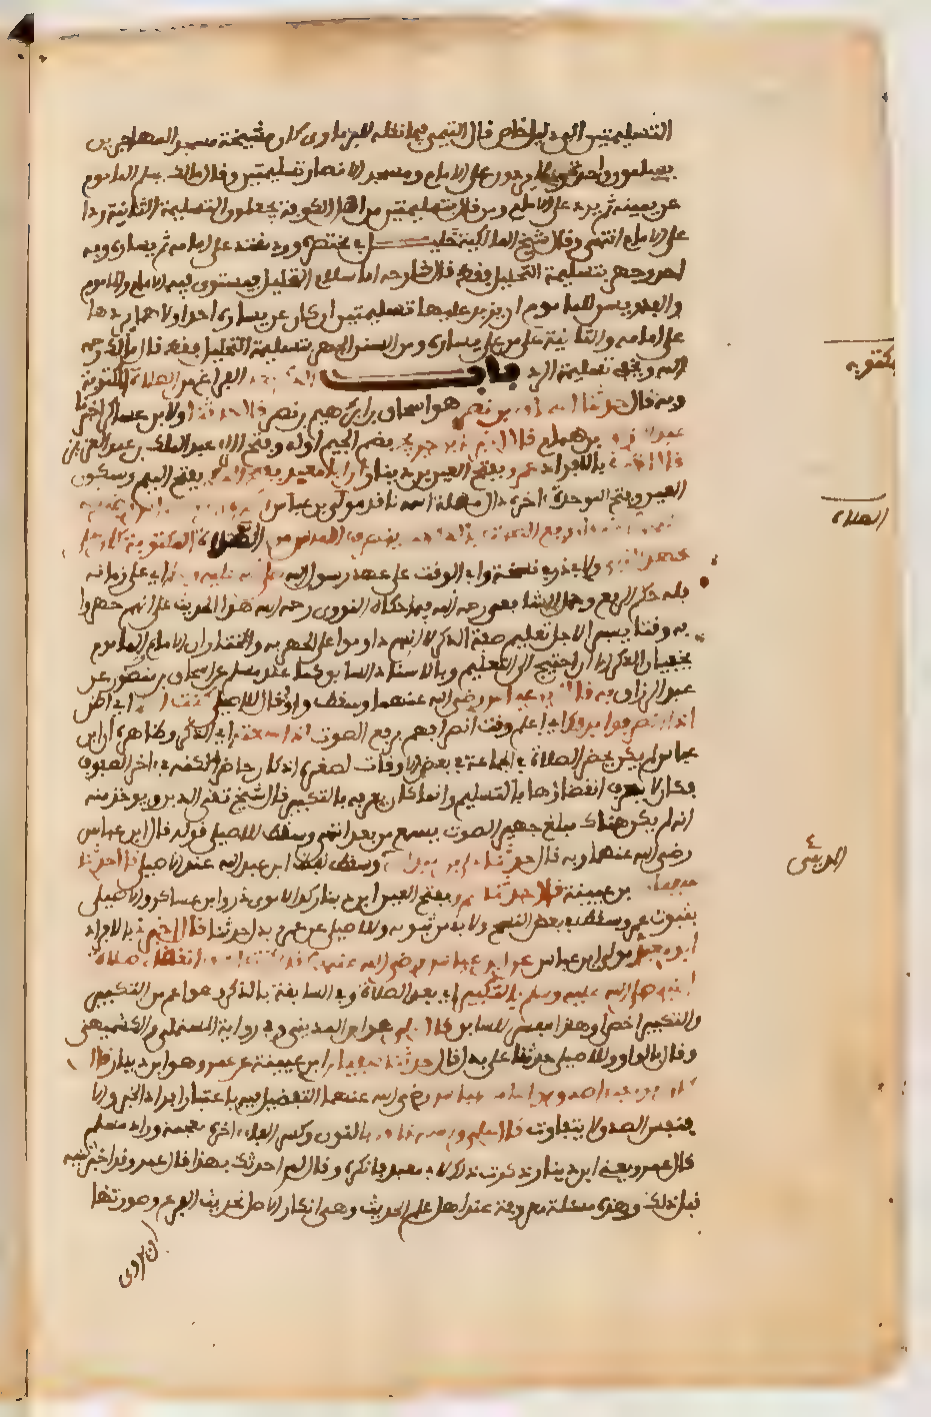 التسليمتين الى دليل خاص قال التيمي فيما نقله البرماوي كان مشيخة مسجد المهاجرين
يسلمون واحدة ولا يردون على الامام ومسجد الانصار تسليمتين وقال مالك يسلم الماموم
عن يمينه ثم يرد على الامام ومن قال بتسليمتين من اهل الكوفة يجعلون التسليمة الثانية ردا
على الامام انتهى وقال شيخ المالكية خليل في مختصره ورد مقتد على امامه ثم يساره وبه
احد وجهر بتسليمة التحليل فقط قال شارحه اما سلام التحليل فيستوي فيه الامام والماموم
والفذ ويسن للماموم ان يزيد عليها تسليمتين ان كان عن يساره احد اولاهما يردها
على امامه والثانية على من على يساره ومن السنن الجهر بتسليمة التحليل فقط قال مالك رحمه
الله ويخفي تسليمة الرد باب الذكر بعد الفراغ من الصلاة المكتوبة
وبه قال حدثنا اسحاق بن نصر هو اسحاق بن ابراهيم بن نصر قال حدثنا ولابن عساكر اخبرنا
عبد الرزاق بن همام قال اخبرنا ابن جريج بضم الجيم اوله وفتح الراء عبد الملك بن عبد العزيز
قال اخبرني بالافراد عمرو بفتح العين بن دينار ان ابا معبد بفتح الميم وسكون
العين وفتح الموحدة اخره دال مهملة اسمه نافذ مولى ابن عباس
رفع الصوت بالذكر حين ينصرف الناس من الصلاة المكتوبة كان على
عهد النبي ولابي ذر في نسخة وابي الوقت على عهد رسول الله صلى الله عليه وسلم اي على زمانه
فله حكم الرفع وحمل الشافعي رحمه الله فيما حكاه النووي رحمه الله هذا الحديث على انهم جهروا
به وقتا يسيرا لاجل تعليم صفة الذكر لا انهم داوموا على الجهر به والمختار ان الامام والماموم
يخفيان الذكر الا ان احتيج الى التعليم وبالاسناد السابق كما عند مسلم عن اسحاق بن منصور عن
عبد الرزاق به قال ابن عباس رضي الله عنهما وسقط واو وقال للاصيلي كنت اعلم اي اظن
اذا انصرفوا بذلك اي اعلم وقت انصرافهم برفع الصوت اذا سمعته اي الذكر وظاهره ان ابن
عباس لم يكن يحضر الصلاة في الجماعة في بعض الاوقات لصغره او كان حاضرا لكنه في اخر الصفوف
فكان لا يعرف انقضاءها بالتسليم وانما كان يعرفه بالتكبير قال الشيخ تقي الدين ويوخذ منه
انه لم يكن هناك مبلغ جهير الصوت يسمع من بعد انتهى وسقط للاصيلي قوله قال ابن عباس
رضي الله عنهما وبه قال حدثنا علي بن عبد الله وسقط لفظ ابن عبد الله عند الاصيلي قال حدثنا
سفيان بن عيينة قال حدثنا عمرو بفتح العين ابن دينار كذا لابوي ذر وابن عساكر والاصيلي
بثبوت عمرو وسقط في بعض النسخ ولا بد من ثبوته وللاصيلي عن عمرو بدل حدثنا قال اخبرني بالافراد
ابو معبد مولى ابن عباس عن ابن عباس رضي الله عنهما قال كنت اعرف انقضاء صلاة
النبي صلى الله عليه وسلم بالتكبير اي بعد الصلاة وفي السابقة بالذكر وهو اعم من التكبير
والتكبير اخص وهذا مفسر للسابق قال علي هو ابن المديني وفي رواية المستملي والكشميهني
وقال بالواو وللاصيلي حدثنا علي بدل قال حدثنا سفيان ابن عيينة عن عمرو هو ابن دينار قال
كان ابو معبد اصدق موالي ابن عباس رضي الله عنهما التفضيل فيه باعتبار افراد الخبر والا
فنفس الصدق لا يتفاوت قال علي واسمه نافذ بالنون وكسر الفاء اخره معجمة وزاد مسلم
قال عمرو يعني ابن دينار ذكرت ذلك لابي معبد فانكره وقال لم احدثك بهذا قال عمرو وقد اخبرتنيه
قبل ذلك وهذه مسئلة معروفة عند اهل علم الحديث وهي انكار الاصل تحديث الفرع وصورتها
ان يروي
مكتوبة
الصلاة
المديني